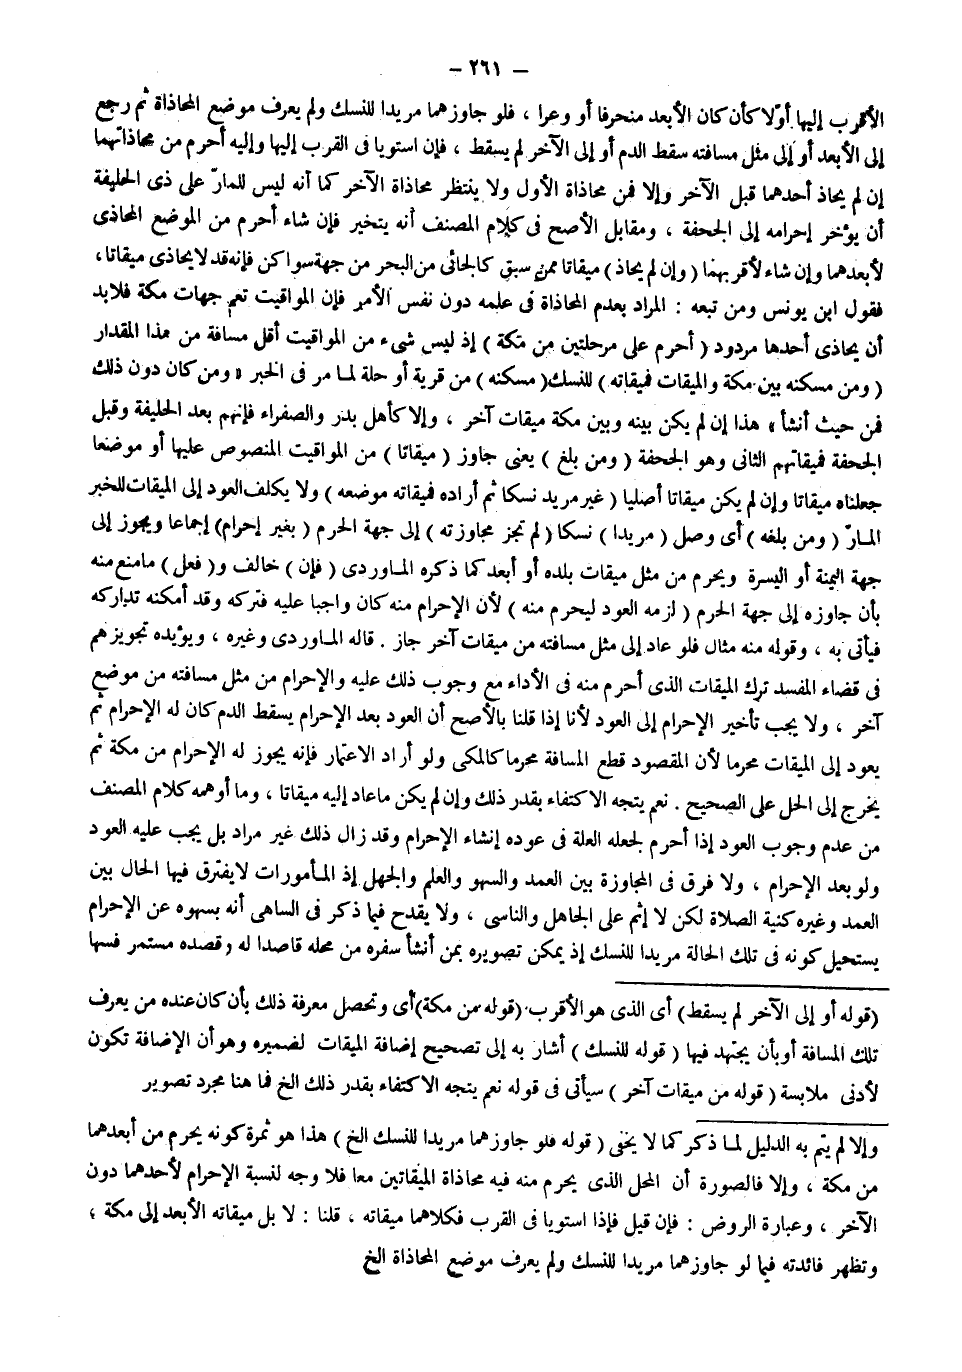 – ٢٦١ –
الأقرب إليها أوّلا كأن كان الأبعد منحرفا أو وعرا ، فلو جاوزهما مريدا للنسك ولم يعرف موضع المحاذاة ثم رجع
إلى الأبعد أو إلى مثل مسافته سقط الدم أو إلى الآخر لم يسقط ، فإن استويا فى القرب إليها وإليه أحرم من محاذاتهما
إن لم يحاذ أحدهما قبل الآخر وإلا فمن محاذاة الأول ولا ينتظر محاذاة الآخر كما أنه ليس للمارّ على ذى الحليفة
أن يؤخر إحرامه إلى الجحفة ، ومقابل الأصح فى كلام المصنف أنه يتخير فإن شاء أحرم من الموضع المحاذى
لأبعدهما وإن شاء لأقربهما ( وإن لم يحاذ ) ميقاتا ممن سبق كالجائى من البحر من جهة سواكن فإنه قد لا يحاذى ميقاتا ،
فقول ابن يونس ومن تبعه : المراد بعدم المحاذاة فى علمه دون نفس الأمر فإن المواقيت تعم جهات مكة فلا بد
أن يحاذى أحدها مردود ( أحرم على مرحلتين من مكة ) إذ ليس شىء من المواقيت أقل مسافة من هذا المقدار
( ومن مسكنه بين مكة والميقات فميقاته ) للنسك ( مسكنه ) من قرية أو حلة لما مر فى الخبر « ومن كان دون ذلك
فمن حيث أنشأ » هذا إن لم يكن بينه وبين مكة ميقات آخر ، وإلا كأهل بدر والصفراء فإنهم بعد الحليفة وقبل
الجحفة فميقاتهم الثانى وهو الجحفة ( ومن بلغ ) يعنى جاوز ( ميقاتا ) من المواقيت المنصوص عليها أو موضعا
جعلناه ميقاتا وإن لم يكن ميقاتا أصليا ( غير مريد نسكا ثم أراده فميقاته موضعه ) ولا يكلف العود إلى الميقات للخبر
المارّ ( ومن بلغه ) أى وصل ( مريدا ) نسكا ( لم تجز مجاوزته ) إلى جهة الحرم ( بغير إحرام ) إجماعا ويجوز إلى
جهة اليمنة أو اليسرة ويحرم من مثل ميقات بلده أو أبعد كما ذكره الماوردى ( فإن ) خالف و( فعل ) ما منع منه
بأن جاوزه إلى جهة الحرم ( لزمه العود ليحرم منه ) لأن الإحرام منه كان واجبا عليه فتركه وقد أمكنه تداركه
فيأتى به ، وقوله منه مثال فلو عاد إلى مثل مسافته من ميقات آخر جاز . قاله الماوردى وغيره ، ويؤيده تجويزهم
فى قضاء المفسد ترك الميقات الذى أحرم منه فى الأداء مع وجوب ذلك عليه والإحرام من مثل مسافته من موضع
آخر ، ولا يجب تأخير الإحرام إلى العود لأنا إذا قلنا بالأصح أن العود بعد الإحرام يسقط الدم كان له الإحرام ثم
يعود إلى الميقات محرما لأن المقصود قطع المسافة محرما كالمكى ولو أراد الاعتمار فإنه يجوز له الإحرام من مكة ثم
يخرج إلى الحل على الصحيح . نعم يتجه الاكتفاء بقدر ذلك وإن لم يكن ما عاد إليه ميقاتا ، وما أوهمه كلام المصنف
من عدم وجوب العود إذا أحرم لجعله العلة فى عوده إنشاء الإحرام وقد زال ذلك غير مراد بل يجب عليه العود
ولو بعد الإحرام ، ولا فرق فى المجاوزة بين العمد والسهو والعلم والجهل إذ المأمورات لا يفترق فيها الحال بين
العمد وغيره كنية الصلاة لكن لا إثم على الجاهل والناسى ، ولا يقدح فيما ذكر فى الساهى أنه بسهوه عن الإحرام
يستحيل كونه فى تلك الحالة مريدا للنسك إذ يمكن تصويره بمن أنشأ سفره من محله قاصدا له وقصده مستمر فسها
( قوله أو إلى الآخر لم يسقط ) أى الذى هو الأقرب ( قوله من مكة ) أى وتحصل معرفة ذلك بأن كان عنده من يعرف
تلك المسافة أو بأن يجتهد فيها ( قوله للنسك ) أشار به إلى تصحيح إضافة الميقات لضميره وهو أن الإضافة تكون
لأدنى ملابسة ( قوله من ميقات آخر ) سيأتى فى قوله نعم يتجه الاكتفاء بقدر ذلك الخ فما هنا مجرد تصوير
وإلا لم يتم به الدليل لما ذكر كما لا يخفى ( قوله فلو جاوزهما مريدا للنسك الخ ) هذا هو ثمرة كونه يحرم من أبعدهما
من مكة ، وإلا فالصورة أن المحل الذى يحرم منه فيه محاذاة الميقاتين معا فلا وجه لنسبة الإحرام لأحدهما دون
الآخر ، وعبارة الروض : فإن قيل فإذا استويا فى القرب فكلاهما ميقاته ، قلنا : لا بل ميقاته الأبعد إلى مكة ،
وتظهر فائدته فيما لو جاوزهما مريدا للنسك ولم يعرف موضع المحاذاة الخ